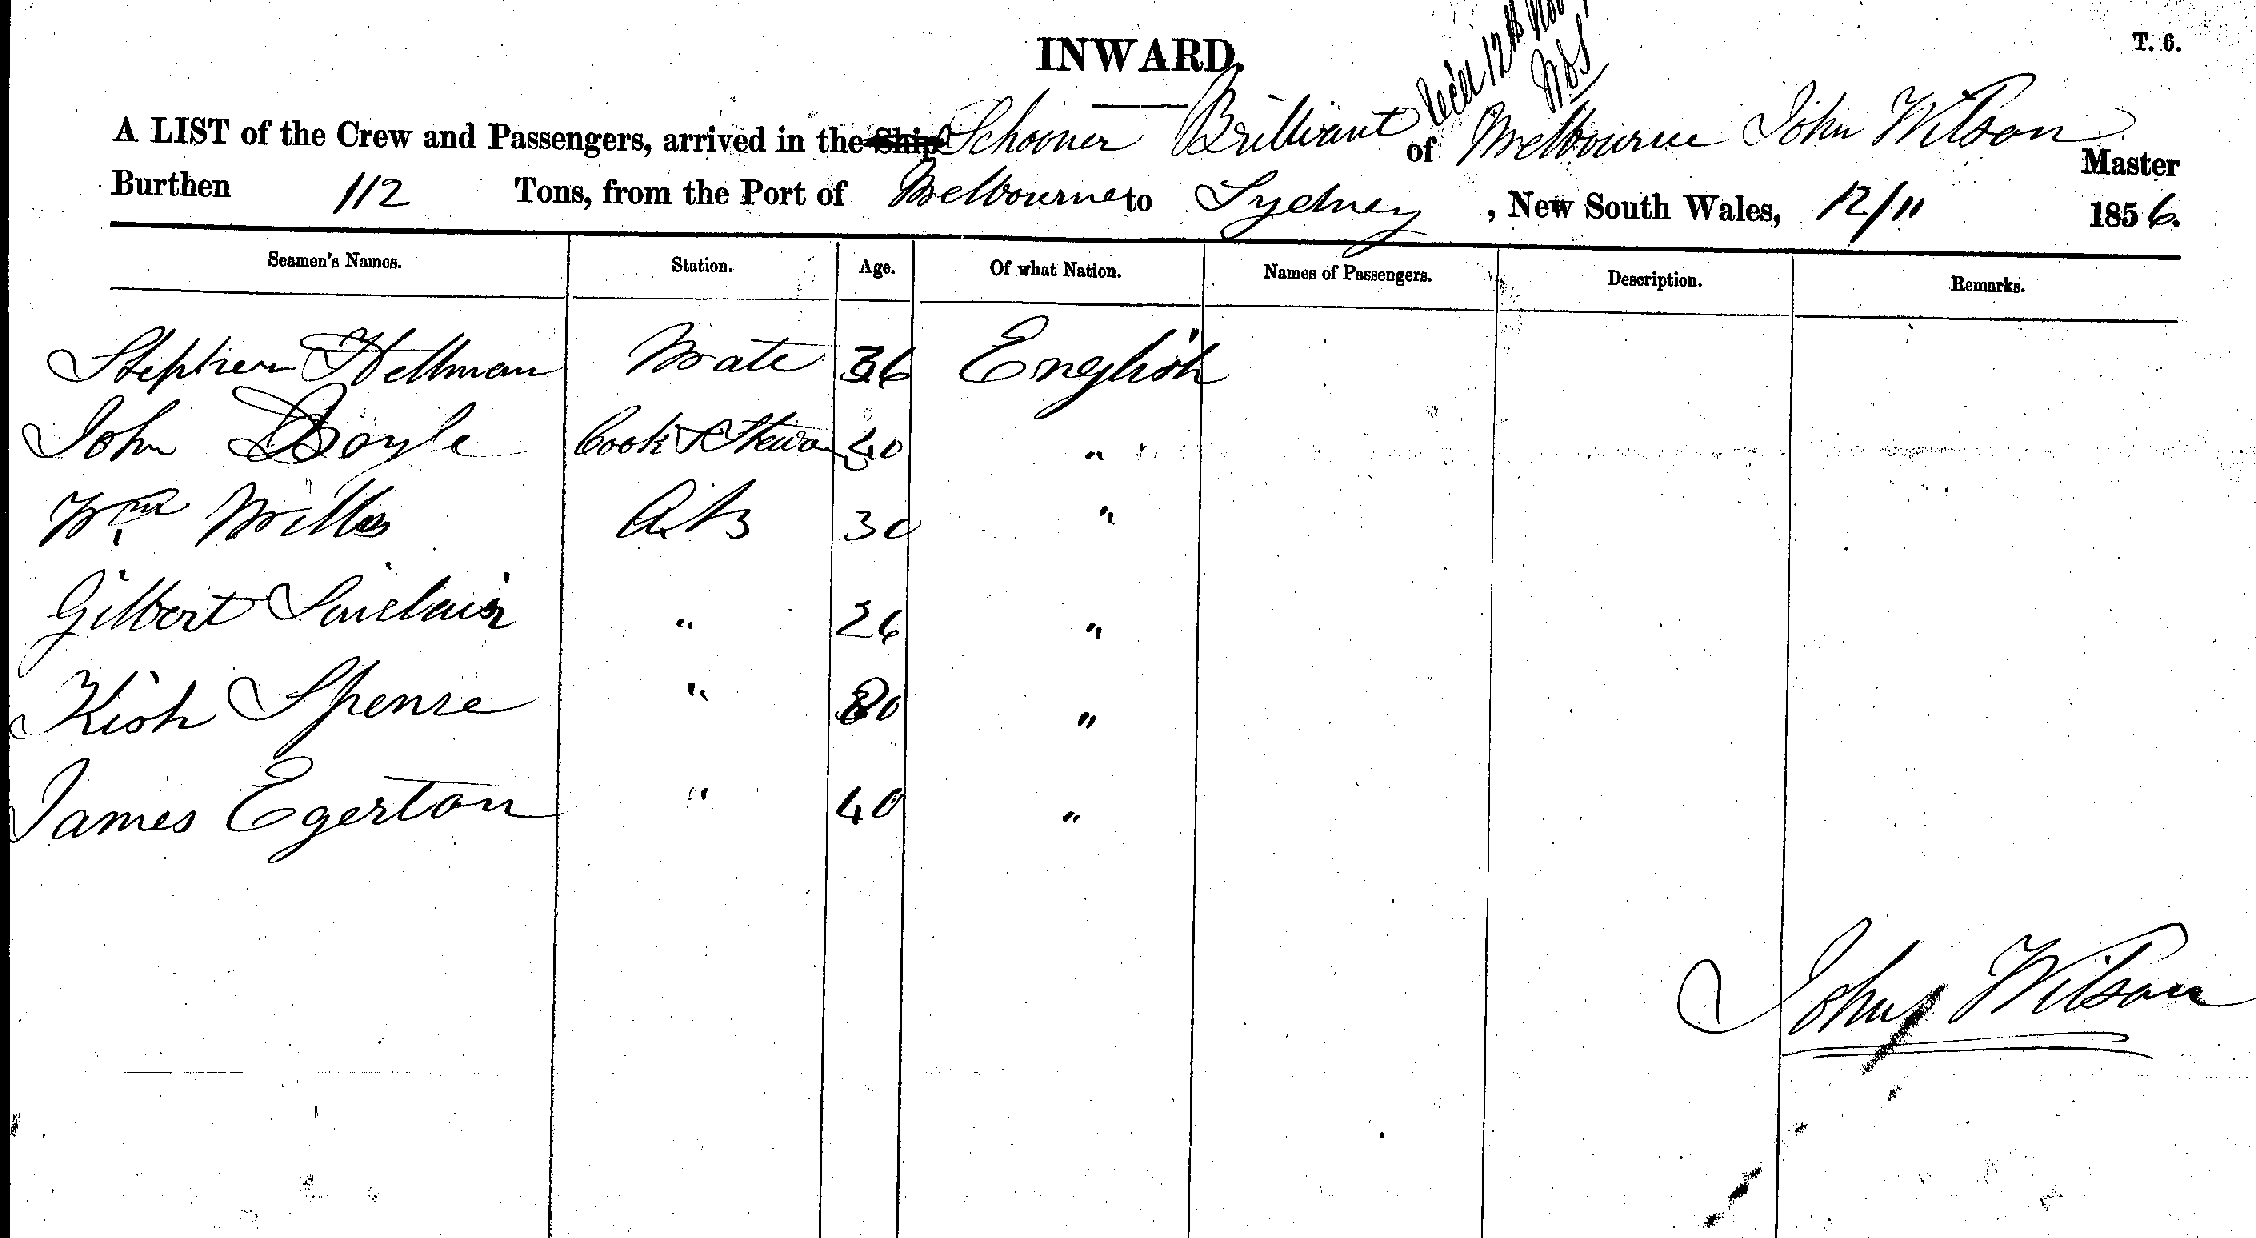 INWARD.
T. 6.
Rec'd 12th Nov
A LIST of the Crew and Passengers, arrived in the Ship Schooner Brilliant of Melbourne John Wilson Master
Burthen 112 Tons, from the Port of Melbourne to Sydney, New South Wales, 12/11 1856.
Seamen's Names. Station. Age. Of what Nation. Names of Passengers. Description. Remarks.
Stephen Hellman Mate 36 English
John Doyle Cook & Stewa 40 "
Wm Miller A.B 30 "
Gilbert Sinclair " 26 "
Spense " "
James Egerton " 40 "
John Wilson